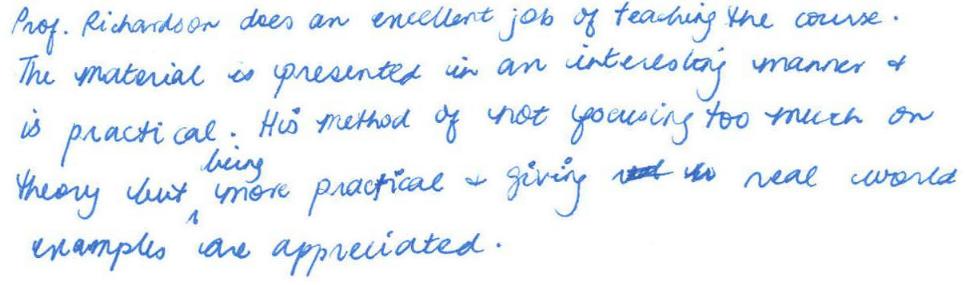 Prof. Richardson does an excellent job of teaching the course.
The material is presented in an interesting manner &
is practical. His method of not focusing too much on
theory but being more practical & giving real world
examples are appreciated.